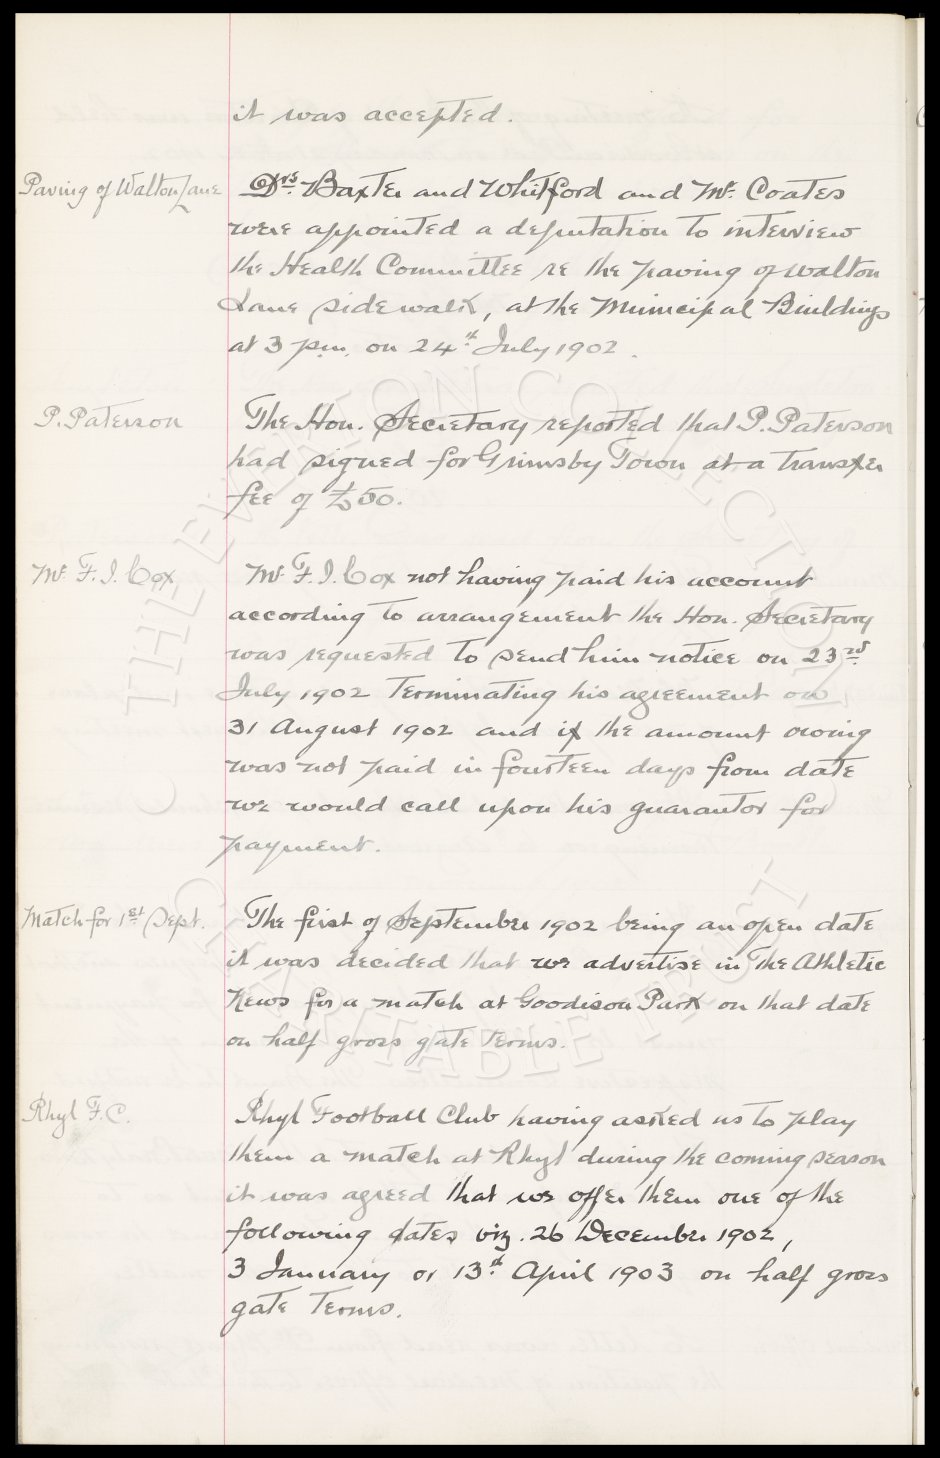 it was accepted.
Paving of Walton Lane
Drs. Baxter and Whitford and Mr. Coates
were appointed a deputation to interview
the Health Committee re the paving of Walton
Lane side walk, at the Municipal Buildings
at 3 p.m. on 24th July 1902.
P. Paterson
The Hon. Secretary reported that P. Paterson
had signed for Grimsby Town at a transfer
fee of £50.
Mr. F. J. Cox
Mr. F. J. Cox not having paid his account
according to arrangement the Hon. Secretary
was requested to send him notice on 23rd
July 1902 terminating his agreement on
31 August 1902 and if the amount owing
was not paid in fourteen days from date
we would call upon his guarantor for
payment.
Match for 1st Sept.
The first of September 1902 being an open date
it was decided that we advertise in The Athletic
News for a match at Goodison Park on that date
on half gross gate terms.
Rhyl F.C.
Rhyl Football Club having asked us to play
them a match at Rhyl during the coming season
it was agreed that we offer them one of the
following dates viz. 26 December 1902,
3 January or 13th April 1903 on half gross
gate terms.
THE EVERTON COLLECTION
CHARITABLE TRUST